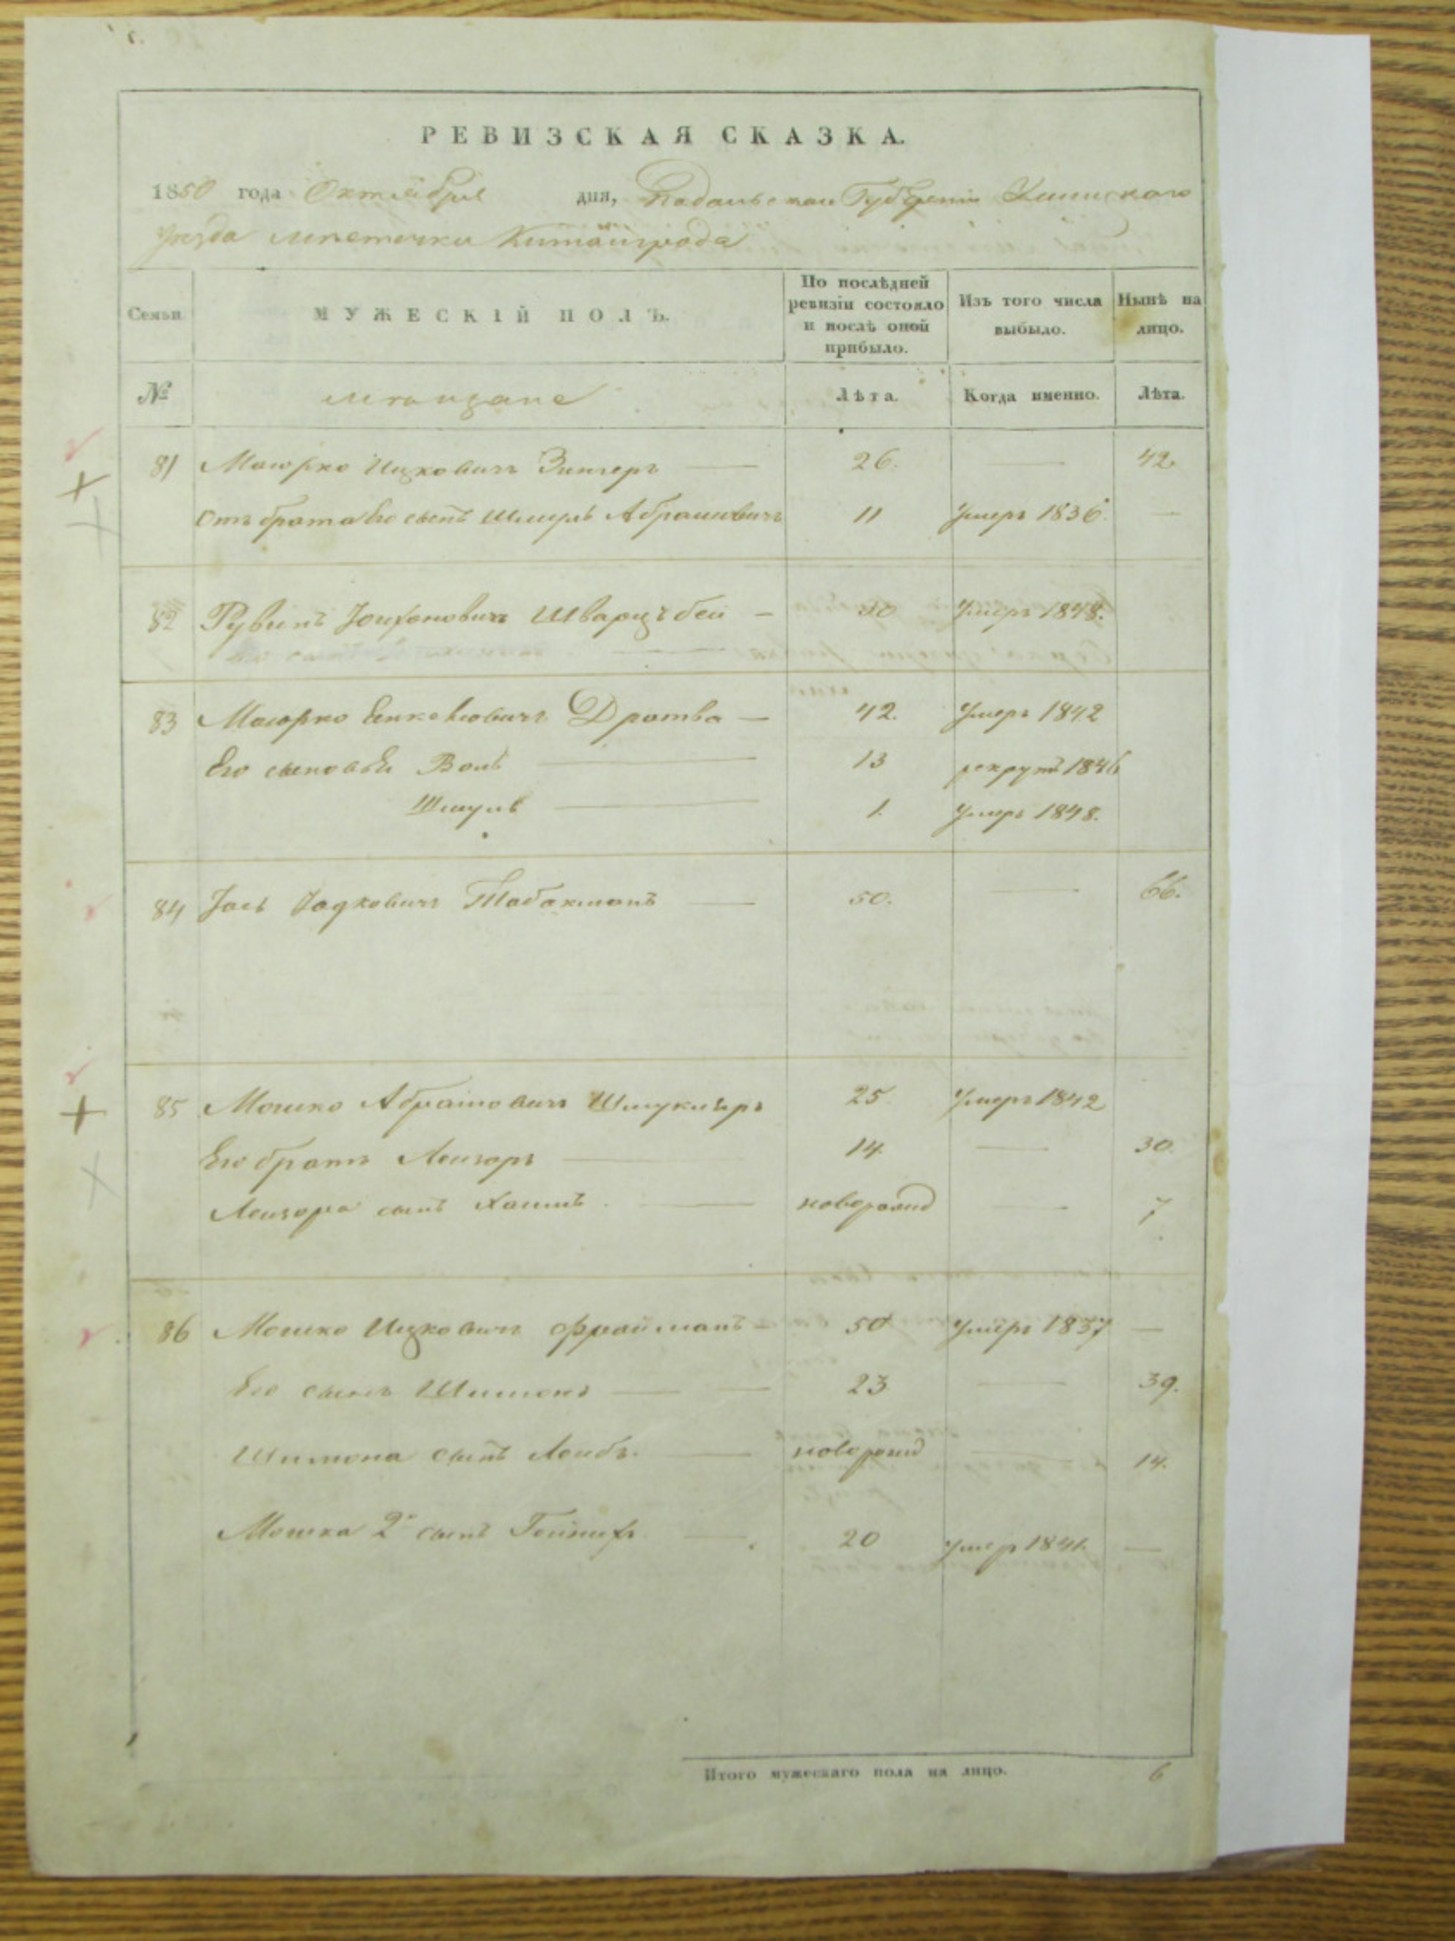 РЕВИЗСКАЯ СКАЗКА.
1850 года Октября дня, Подольской Губернии Ушицкого
уезда местечка Китайгорода
Семьи МУЖЕСКІЙ ПОЛЪ. По послѣдней ревизіи состояло и послѣ оной прибыло. Изъ того числа выбыло. Нынѣ на лицо.
№ мещане Лѣта. Когда именно. Лѣта.
81 Мошко Ицковичъ Зингеръ 26. — 42
Отъ брата Его сынъ Шмуль Абрамовичъ 11 Умеръ 1836. —
82 Рувинъ Шварцъбей — 30 Умеръ 1848.
83 Мошко Дратва — 42. Умеръ 1842
Его сыновья Воль 13 рекрутъ 1846
Шмуль 1. Умеръ 1848.
84 Іось Табакманъ — 50. — 66.
85 Мошко Абрамовичъ Шмуклеръ 25 Умеръ 1842
Его братъ Лейзоръ — 14 — 30.
Лейзора сынъ Хаимъ — новорожд — 7
86 Мошко Ицковичъ Фрайманъ — 50 Умеръ 1837 —
Его сынъ Шимонъ — 23 — 39.
Шимона сынъ Лейбъ. — новорожд — 14.
Мошка 2й сынъ — 20 умер 1841. —
Итого мужескаго пола на лицо. 6